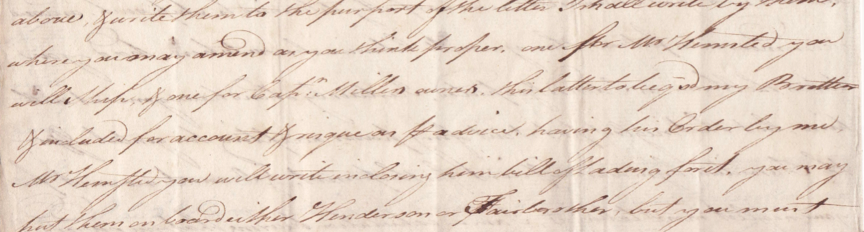 above, & write them to the purport of the letter I shall write by them,
where you may amend as you think proper. one for Mr Hemsted you
will ship, & one for Capn. Millers owner. this latter to be my Brother
& included for account & risque as p advice, having his Order by me
Mr Hemsted you will write inclosing him bill of Lading for it. you may
put them on board either Henderson or Fairbrother, but you must